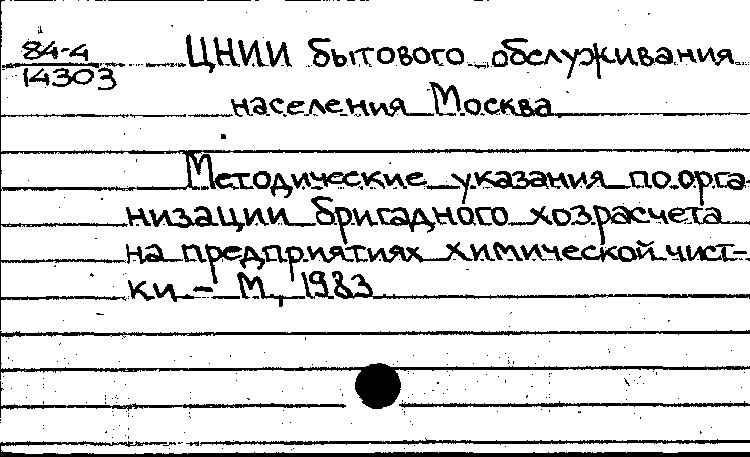 84-4
14303
ЦНИИ бытового обслуживания
населения Москва
Методические указания по орга-
низации бригадного хозрасчета
на предприятиях химической чист-
ки. – М, 1983